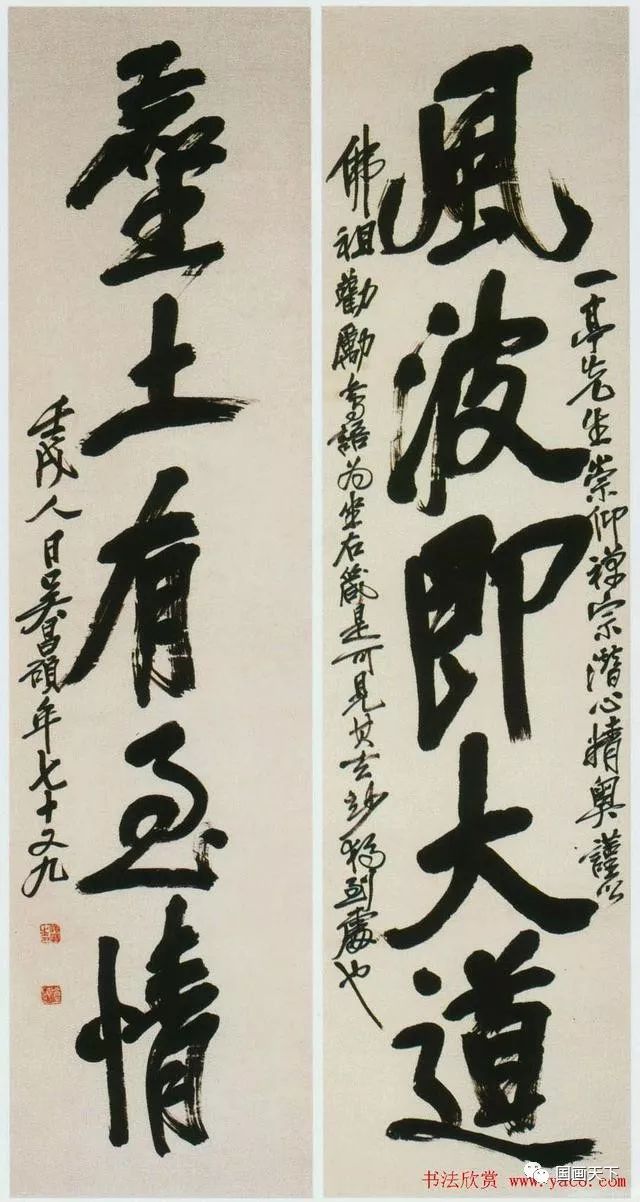 風波即大道
一亭先生崇仰禪宗潛心精奧謹以
佛祖勸勵語為坐右箴是可見其玄妙獨到處也
塵土有至情
壬戌人日吳昌碩年七十又九
国画天下
书法欣赏 www.yac8.com